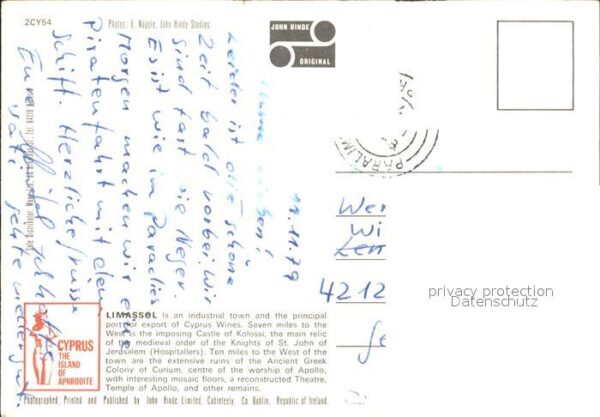 2CY54
Photos: E. Nägele, John Hinde Studios
JOHN HINDE
ORIGINAL
PARALIM
11.11.79
Leider ist die schöne
Zeit bald vorbei. Wir
sind fast wie Neger.
Es ist wie im Paradies
Morgen machen wir eine
Piratenfahrt mit dem
Schiff. Herzliche Grüsse
Wer
Wi
4212
privacy protection
Datenschutz
CYPRUS
THE
ISLAND
OF
APHRODITE
LIMASSOL is an industrial town and the principal
port for export of Cyprus Wines. Seven miles to the
West is the imposing Castle of Kolossi, the main relic
of the medieval order of the Knights of St. John of
Jerusalem (Hospitallers). Ten miles to the West of the
town are the extensive ruins of the Ancient Greek
Colony of Curium, centre of the worship of Apollo,
with interesting mosaic floors, a reconstructed Theatre,
Temple of Apollo, and other remains.
Photographed, Printed and Published by John Hinde Limited, Cabinteely, Co. Dublin, Republic of Ireland.